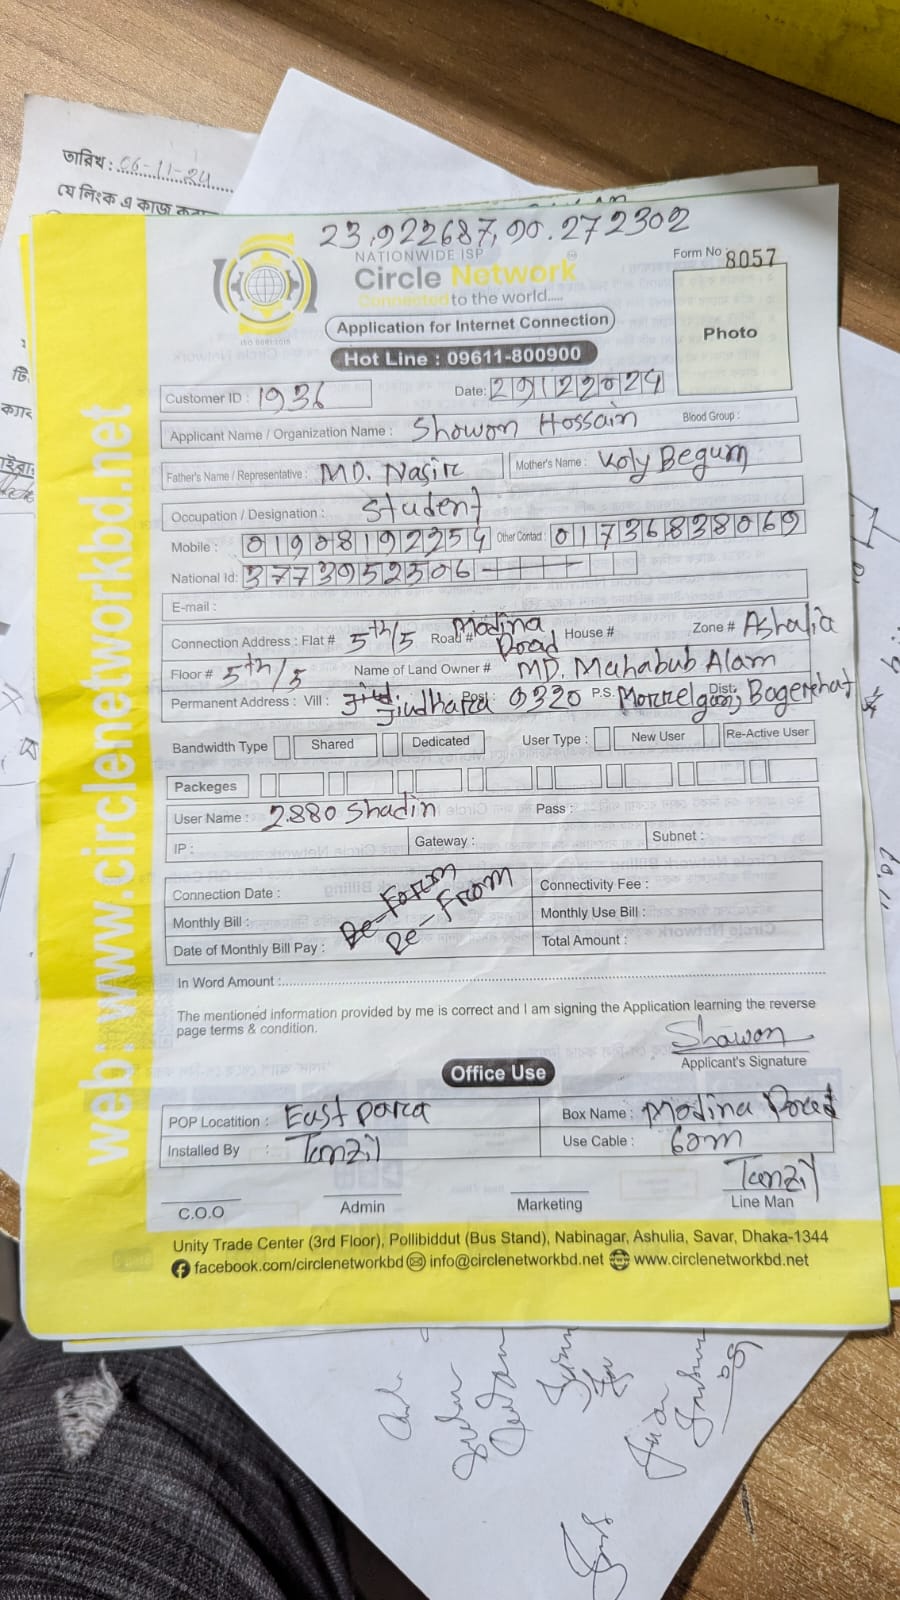 তারিখ : 06-11-24
যে লিংক এ কাজ
23.922687, 90.272302
NATIONWIDE ISP
Circle Network
Connected to the world.....
ISO 9001:2015
Form No : 8057
Application for Internet Connection
Photo
Hot Line : 09611-800900
Customer ID : 1936 Date: 29122024
Applicant Name / Organization Name : Showon Hossain Blood Group :
Father's Name / Representative : MD. Nasir Mother's Name : Koly Begum
Occupation / Designation : Student
Mobile : 01908192254 Other Contact : 01736838069
National Id: 3773952306
E-mail :
Connection Address : Flat # 5th/5 Road # Modina Road House # Zone # Ashulia
Floor # 5th/5 Name of Land Owner # MD. Mahabub Alam
Permanent Address : Vill : Jiudhara Post: 9320 P.S. Morrelganj Dist: Bagerhat
Bandwidth Type Shared Dedicated User Type : New User Re-Active User
Packeges
User Name : 2880 Shadin Pass :
IP : Gateway : Subnet :
Connection Date : Connectivity Fee :
Re-Form
Monthly Bill : Monthly Use Bill :
Re-From
Date of Monthly Bill Pay : Total Amount :
In Word Amount :
The mentioned information provided by me is correct and I am signing the Application learning the reverse
page terms & condition.
Showon
Applicant's Signature
Office Use
POP Locatition : East para Box Name : Modina Road
Installed By : Tanzil Use Cable : 60m
Tanzil
C.O.O Admin Marketing Line Man
Unity Trade Center (3rd Floor), Pollibiddut (Bus Stand), Nabinagar, Ashulia, Savar, Dhaka-1344
facebook.com/circlenetworkbd info@circlenetworkbd.net www.circlenetworkbd.net
web: www.circlenetworkbd.net